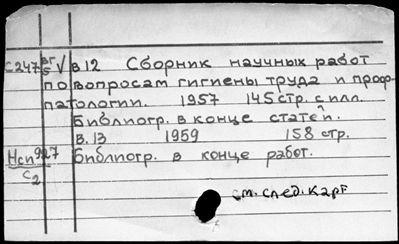 С247 вг/5 V в.12 Сборник научных работ
по вопросам гигиены труда и проф-
патологии. 1957 145 стр. с илл.
Библиогр. в конце статей.
в.13 1959 158 стр.
Нсп927 Библиогр. в конце работ.
с2
см. след. карт